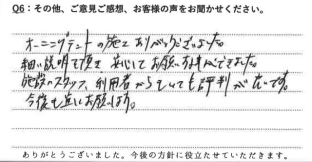 Q6：その他、ご意見ご感想、お客様の声をお聞かせください。
オーニングテントの施工ありがとうございました。
細い説明で頂き、安心してお願い出来ました。
施設のスタッフ、利用者からとても評判が良いです。
今後も宜しくお願いします。
ありがとうございました。今後の方針に役立たせていただきます。